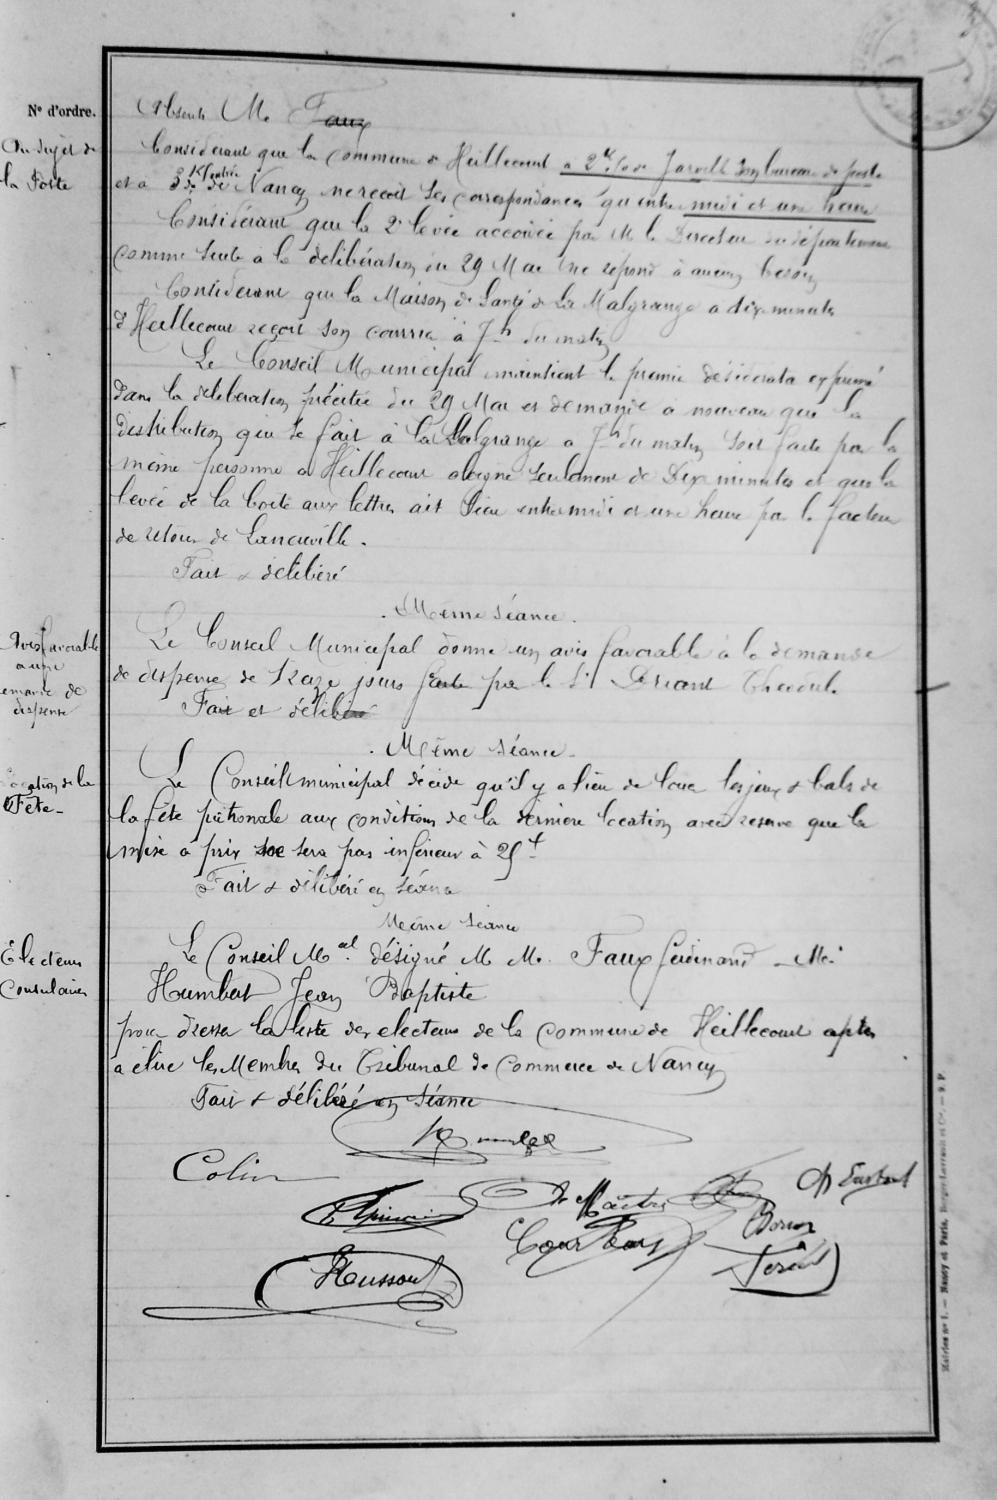 N° d'ordre.
Absents M. Faux
Au sujet de
la Poste
Considérant que la commune d'Heillecourt a 2 K. de Jarville son bureau de poste
et à 3 K. de Nancy ne reçoit ses correspondances qu'entre midi et une heure
Considérant que la 2e levée accordée par M. le Directeur du département
comme suite à la délibération du 29 Mai ne répond à aucun besoin
Considérant que la Maison de Santé de La Malgrange a dix minutes
d'Heillecourt reçoit son courrier à 7h du matin
Le Conseil Municipal maintient le premier désidérata exprimé
dans la délibération précitée du 29 Mai et demande à nouveau que la
distribution qui se fait à la Malgrange a 7h du matin soit faite par la
même personne à Heillecourt éloigné seulement de Dix minutes et que la
levée de la boîte aux lettres ait lieu entre midi et une heure par le facteur
de retour de Laneuville.
Fait & délibéré
Même séance.
Avis favorable
a une
demande de
dispense
Le Conseil Municipal donne un avis favorable à la demande
de dispense de treize jours faite par le Sr
Fait et délibéré
Même séance.
Location de la
Fête
Le Conseil municipal décide qu'il y a lieu de louer les jeux & bals de
la fête patronale aux conditions de la dernière location avec réserve que la
mise à prix ne sera pas inférieur à 25f
Fait & délibéré en séance
Même séance
Electeurs
Consulaires
Le Conseil Mal. désigné M M. Faux ferdinand - M.
Humbert Jean Baptiste
pour dresser la liste des electeurs de la commune de Heillecourt aptes
a élire les Membres du Tribunal de Commerce de Nancy
Fait & délibéré en séance
Colin
Le Maître
Courtois
Houssout
Mairies n° 1. — Nancy et Paris, Berger-Levrault et Cie. — 9. P.